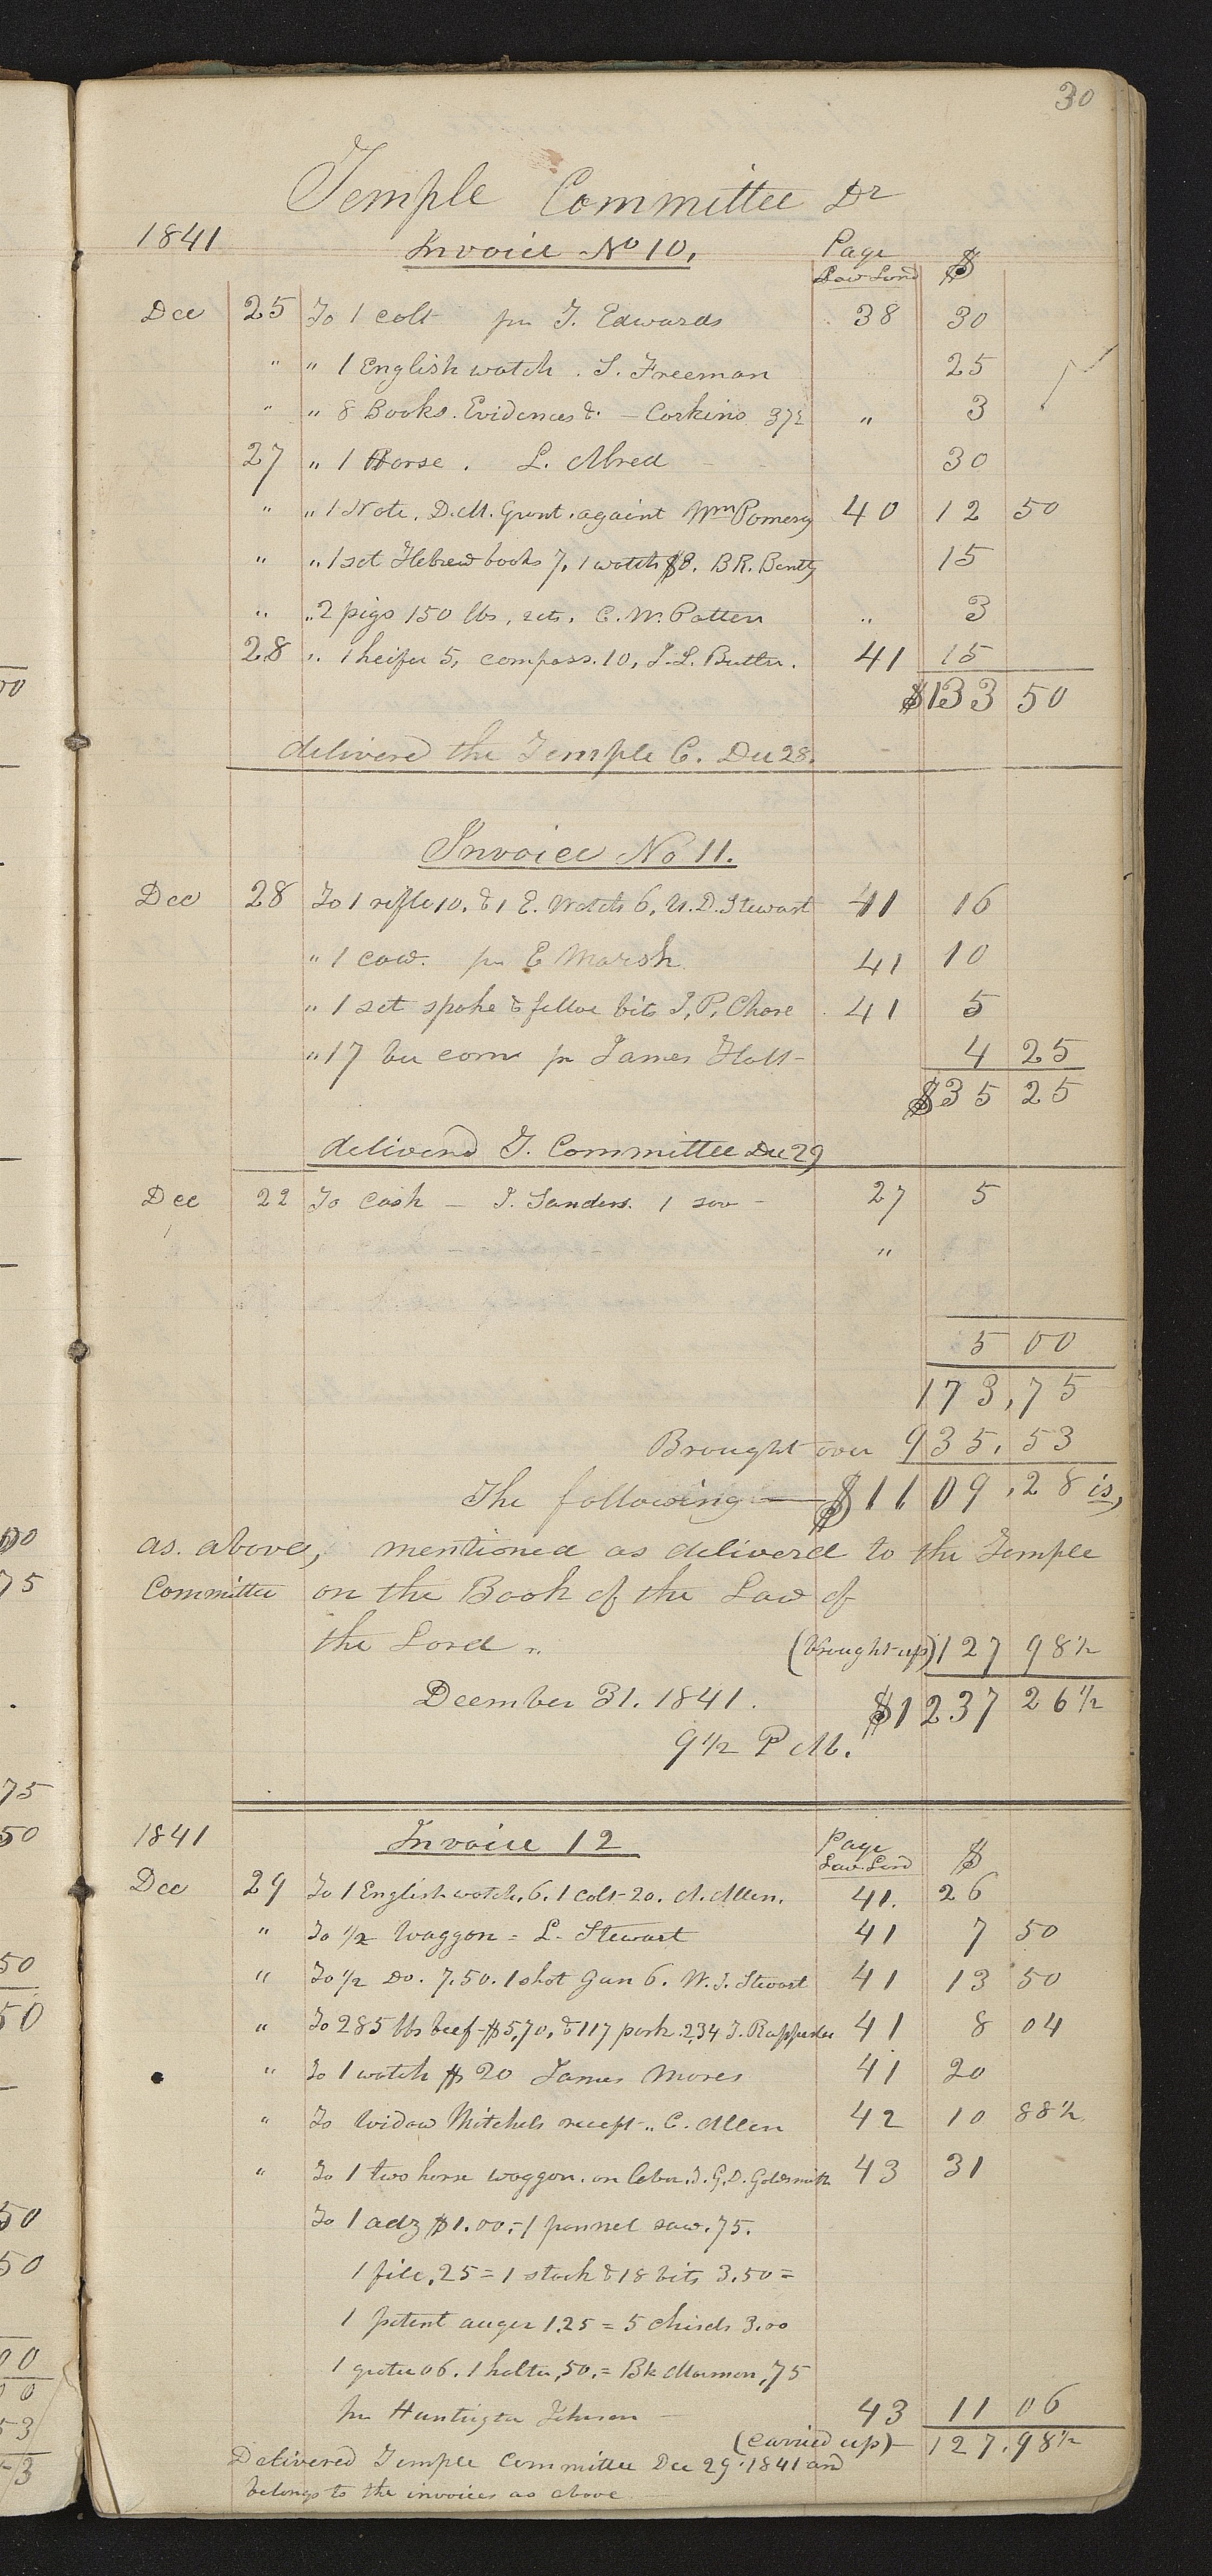 30
Temple Committee Dr
1841 Invoice No 10. Page Law Lord $
Dec 25 To 1 colt pr T. Edwards 38 30
" " 1 English watch . S. Freeman 25
" " 8 Books. Evidences &. — Corkins 37½ " 3
27 " 1 Horse . L. Alred 30
" " 1 Note. D.M. Grant. againt Wm Pomery 40 12 50
" " 1 set Hebrew books 7, 1 watch $8. B R. Bently 15
" " 2 pigs 150 lbs, 2cts. C. W. Patten " 3
28 " 1 heifer 5, compass. 10, J. L. Butler. 41 15
$133 50
delivered the Temple C. Dec 28.
Invoice No 11.
Dec 28 To 1 rifle 10. & 1 E. Watch 6, U. D. Stewart 41 16
" 1 cow. pr E Marsh 41 10
" 1 set spoke & felloe bits I, P, Chase 41 5
" 17 bu corn pr James Holt - 4 25
$35 25
delivered T. Committee Dec 29
Dec 22 To Cash — J. Sanders. 1 sov - 27 5
"
5 00
173,75
Brought over 935.53
The following — $1109.28 is,
as. above, mentioned as deliverd to the Temple
Committee on the Book of the Law of
the Lord " (brought up) 127 98½
December 31. 1841. $1237 26½
9½ P M.
1841 Invoice 12 Page Law Lord $
Dec 29 To 1 English watch. 6. 1 colt - 20. A. Allen. 41. 26
" To ½ Waggon = L. Stewart 41 7 50
" To ½ Do. 7.50. 1 shot Gun 6. W. J. Stewart 41 13 50
" To 285 lbs beef - $5,70, & 117 pork. 2,34 T. Rappleee 41 8 04
" To 1 watch $20 James Moses 41 20
" To Widow Mitchels recept " C. Allen 42 10 88½
" To 1 two horse waggon. on labor. J. G. D. Goldsmith 43 31
To 1 adz $1.00, - 1 pannel saw. 75.
1 file, 25 = 1 stock & 18 bits 3.50 =
1 patent auger 1.25 = 5 chisels 3.00
1 grater 06. 1 halter, 50, = Bk Mormon, 75
pr Huntington Johnson — 43 11 06
(carried up) - 127.98½
Delivered Temple Committee Dec 29. 1841 and
belongs to the invoices as above